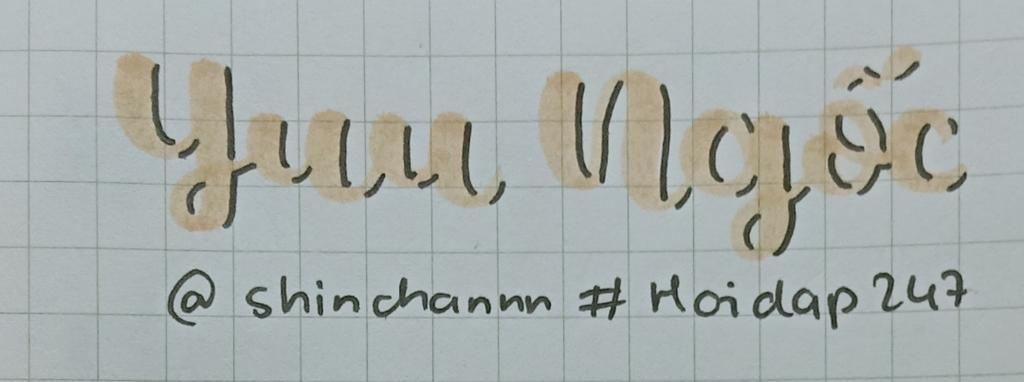 Yuu Ngốc
@ shinchannn # Hoidap 247